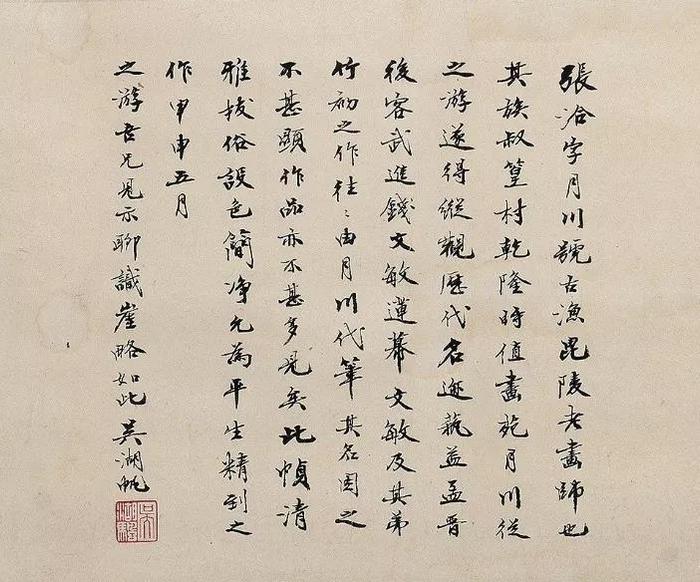 張洽字月川號古漁毘陵老畫師也
其族叔篁村乾隆時值畫苑月川從
之游遂得縱觀歷代名迹藝益孟晉
後客武進錢文敏蓮幕文敏及其弟
竹初之作往〻由月川代筆其名因之
不甚顯作品亦不甚多見矣此幀清
雅拔俗設色簡净允為平生精到之
作甲申五月
之游吉兄見示聊識崖略如此吳湖帆